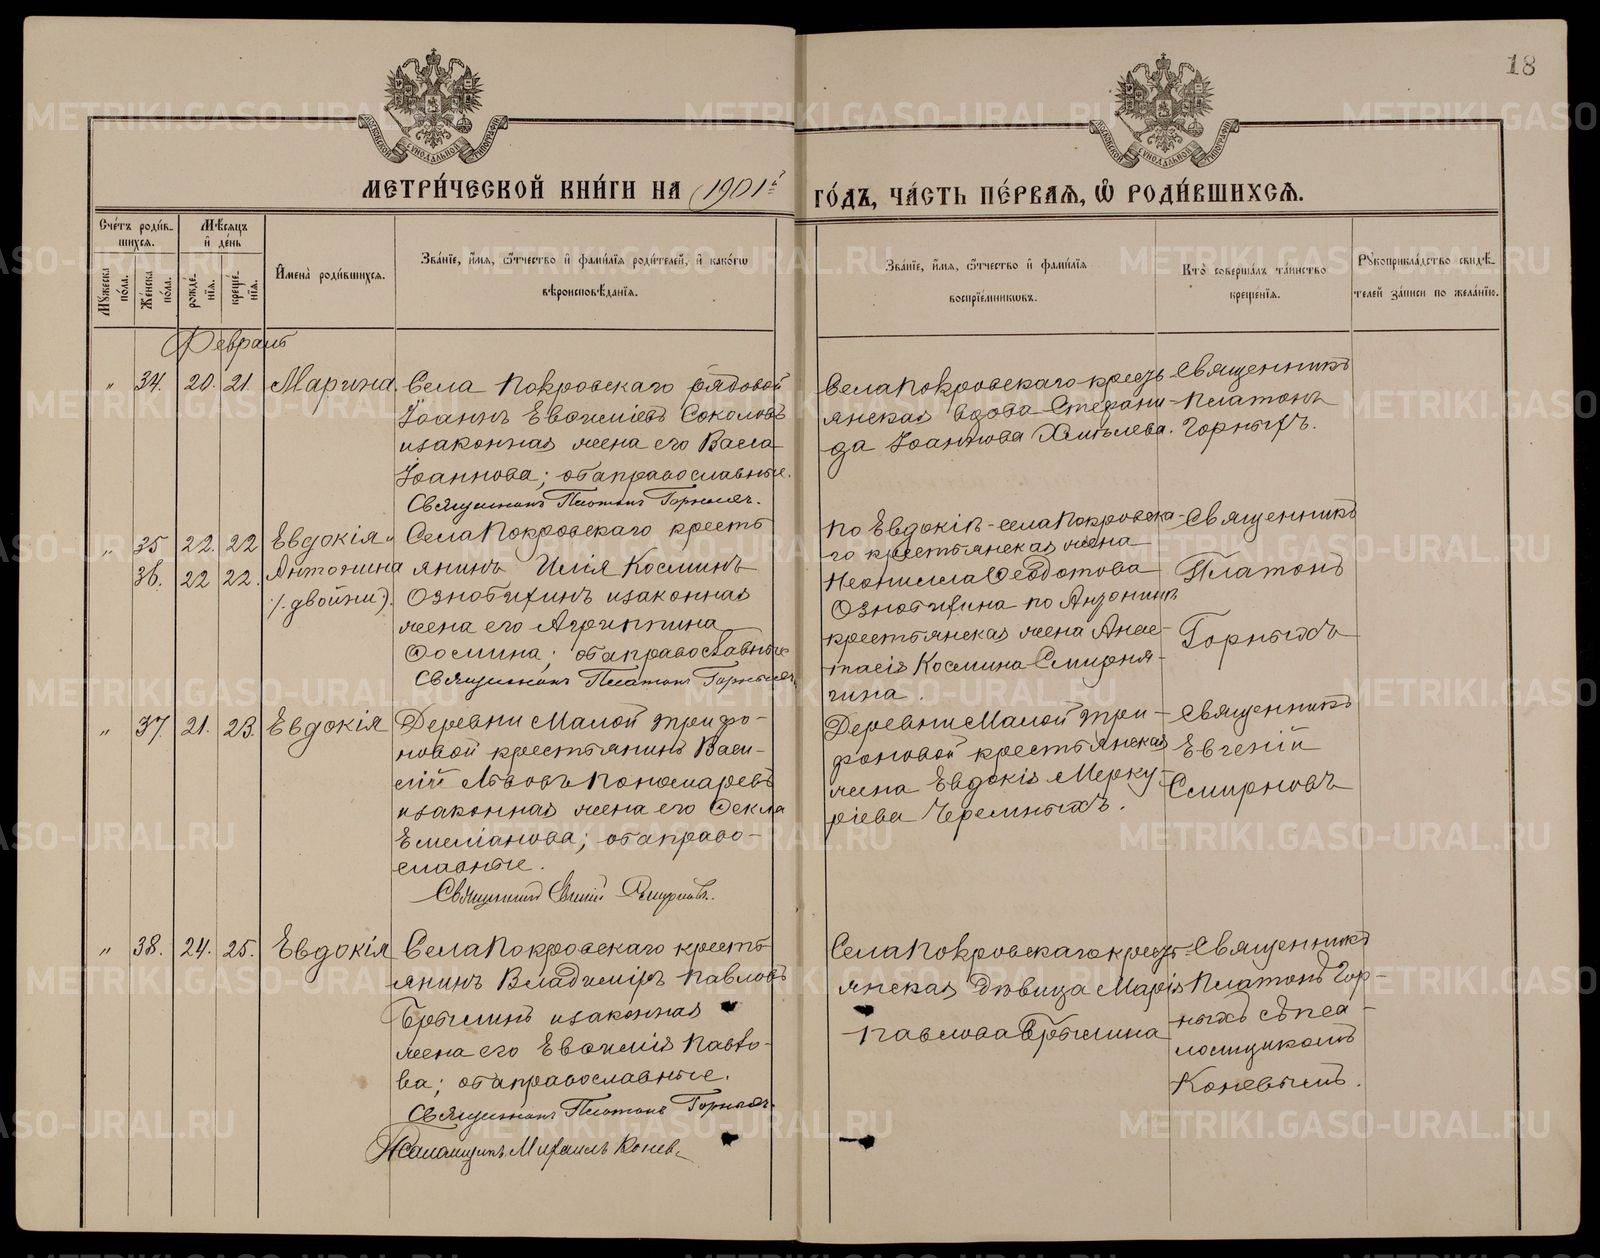 18
МОСКОВСКОЙ СѴНОДАЛЬНОЙ ТИПОГРАФІИ
МОСКОВСКОЙ СѴНОДАЛЬНОЙ ТИПОГРАФІИ
МЕТРИ́ЧЕСКОЙ КНИ́ГИ НА 1901й ГО́ДЪ, ЧА́СТЬ ПЕ́РВАѦ, Ѽ РОДИ́ВШИХСѦ.
Сче́тъ роди́в-
шихсѧ.
Мѣ́сѧцъ
и҆ де́нь
Мꙋ́жеска по́ла.
Же́нска по́ла.
рожде́-
нїѧ.
креще́-
нїѧ.
И҆мена̀ роди́вшихсѧ.
Зва́нїе, и҆́мѧ, ѻ҆́тчество и҆ фами́лїѧ роди́телей, и҆ како́гѡ
вѣроисповѣ́данїѧ.
Зва́нїе, и҆́мѧ, ѻ҆́тчество и҆ фами́лїѧ
воспрїе́мникѡвъ.
Кто̀ соверша́лъ та́инство
креще́нїѧ.
Рꙋкоприкла́дство свидѣ́-
телей за́писи по жела́нїю.
Февраль
" 34. 20. 21. Марина.
Села Покровскаго рядовой
Іоаннъ Евѳиміевъ Соколовъ
и законная жена его Васса
Іоаннова; оба православные.
Священникъ Платонъ Горныхъ.
Села Покровскаго кресть-
янская вдова Стефани-
да Іоаннова Хмѣлева.
Священникъ
Платонъ
Горныхъ.
" 35 22. 22 Евдокія и
36. 22 22. Антонина
(двойни).
Села Покровскаго кресть
янинъ Илія Косминъ
Ознобихинъ и законная
жена его Агриппина
Ѳомина; оба православные
Священникъ Платонъ Горныхъ.
По Евдокіѣ - села Покровска-
го крестьянская жена
Неонилла Ѳеодотова
Ознобихина по Антонинѣ
крестьянская жена Анас-
тасія Космина Смирня-
гина.
Священникъ
Платонъ
Горныхъ
" 37. 21. 23. Евдокія
Деревни Малой Трифо-
новой крестьянинъ Васи-
лій Львовъ Пономаревъ
и законная жена его Ѳекла
Емеліанова; оба право-
славные.
Священникъ Евгеній Смирновъ.
Деревни Малой Три-
фоновой крестьянская
жена Евдокія Мерку-
ріева Черемныхъ.
Священникъ
Евгеній
Смирновъ
" 38. 24. 25. Евдокія
Села Покровскаго кресть
янинъ Владиміръ Павловъ
Брылинъ и законная
жена его Евѳимія Павло-
ва; оба православные.
Священникъ Платонъ Горныхъ.
Псаломщикъ Михаилъ Коневъ
Села Покровскаго крест-
янская дѣвица Марія
Павлова Брылина
Священникъ
Платонъ Гор-
ныхъ съ пса-
ломщикомъ
Коневымъ.
METRIKI.GASO-URAL.RU